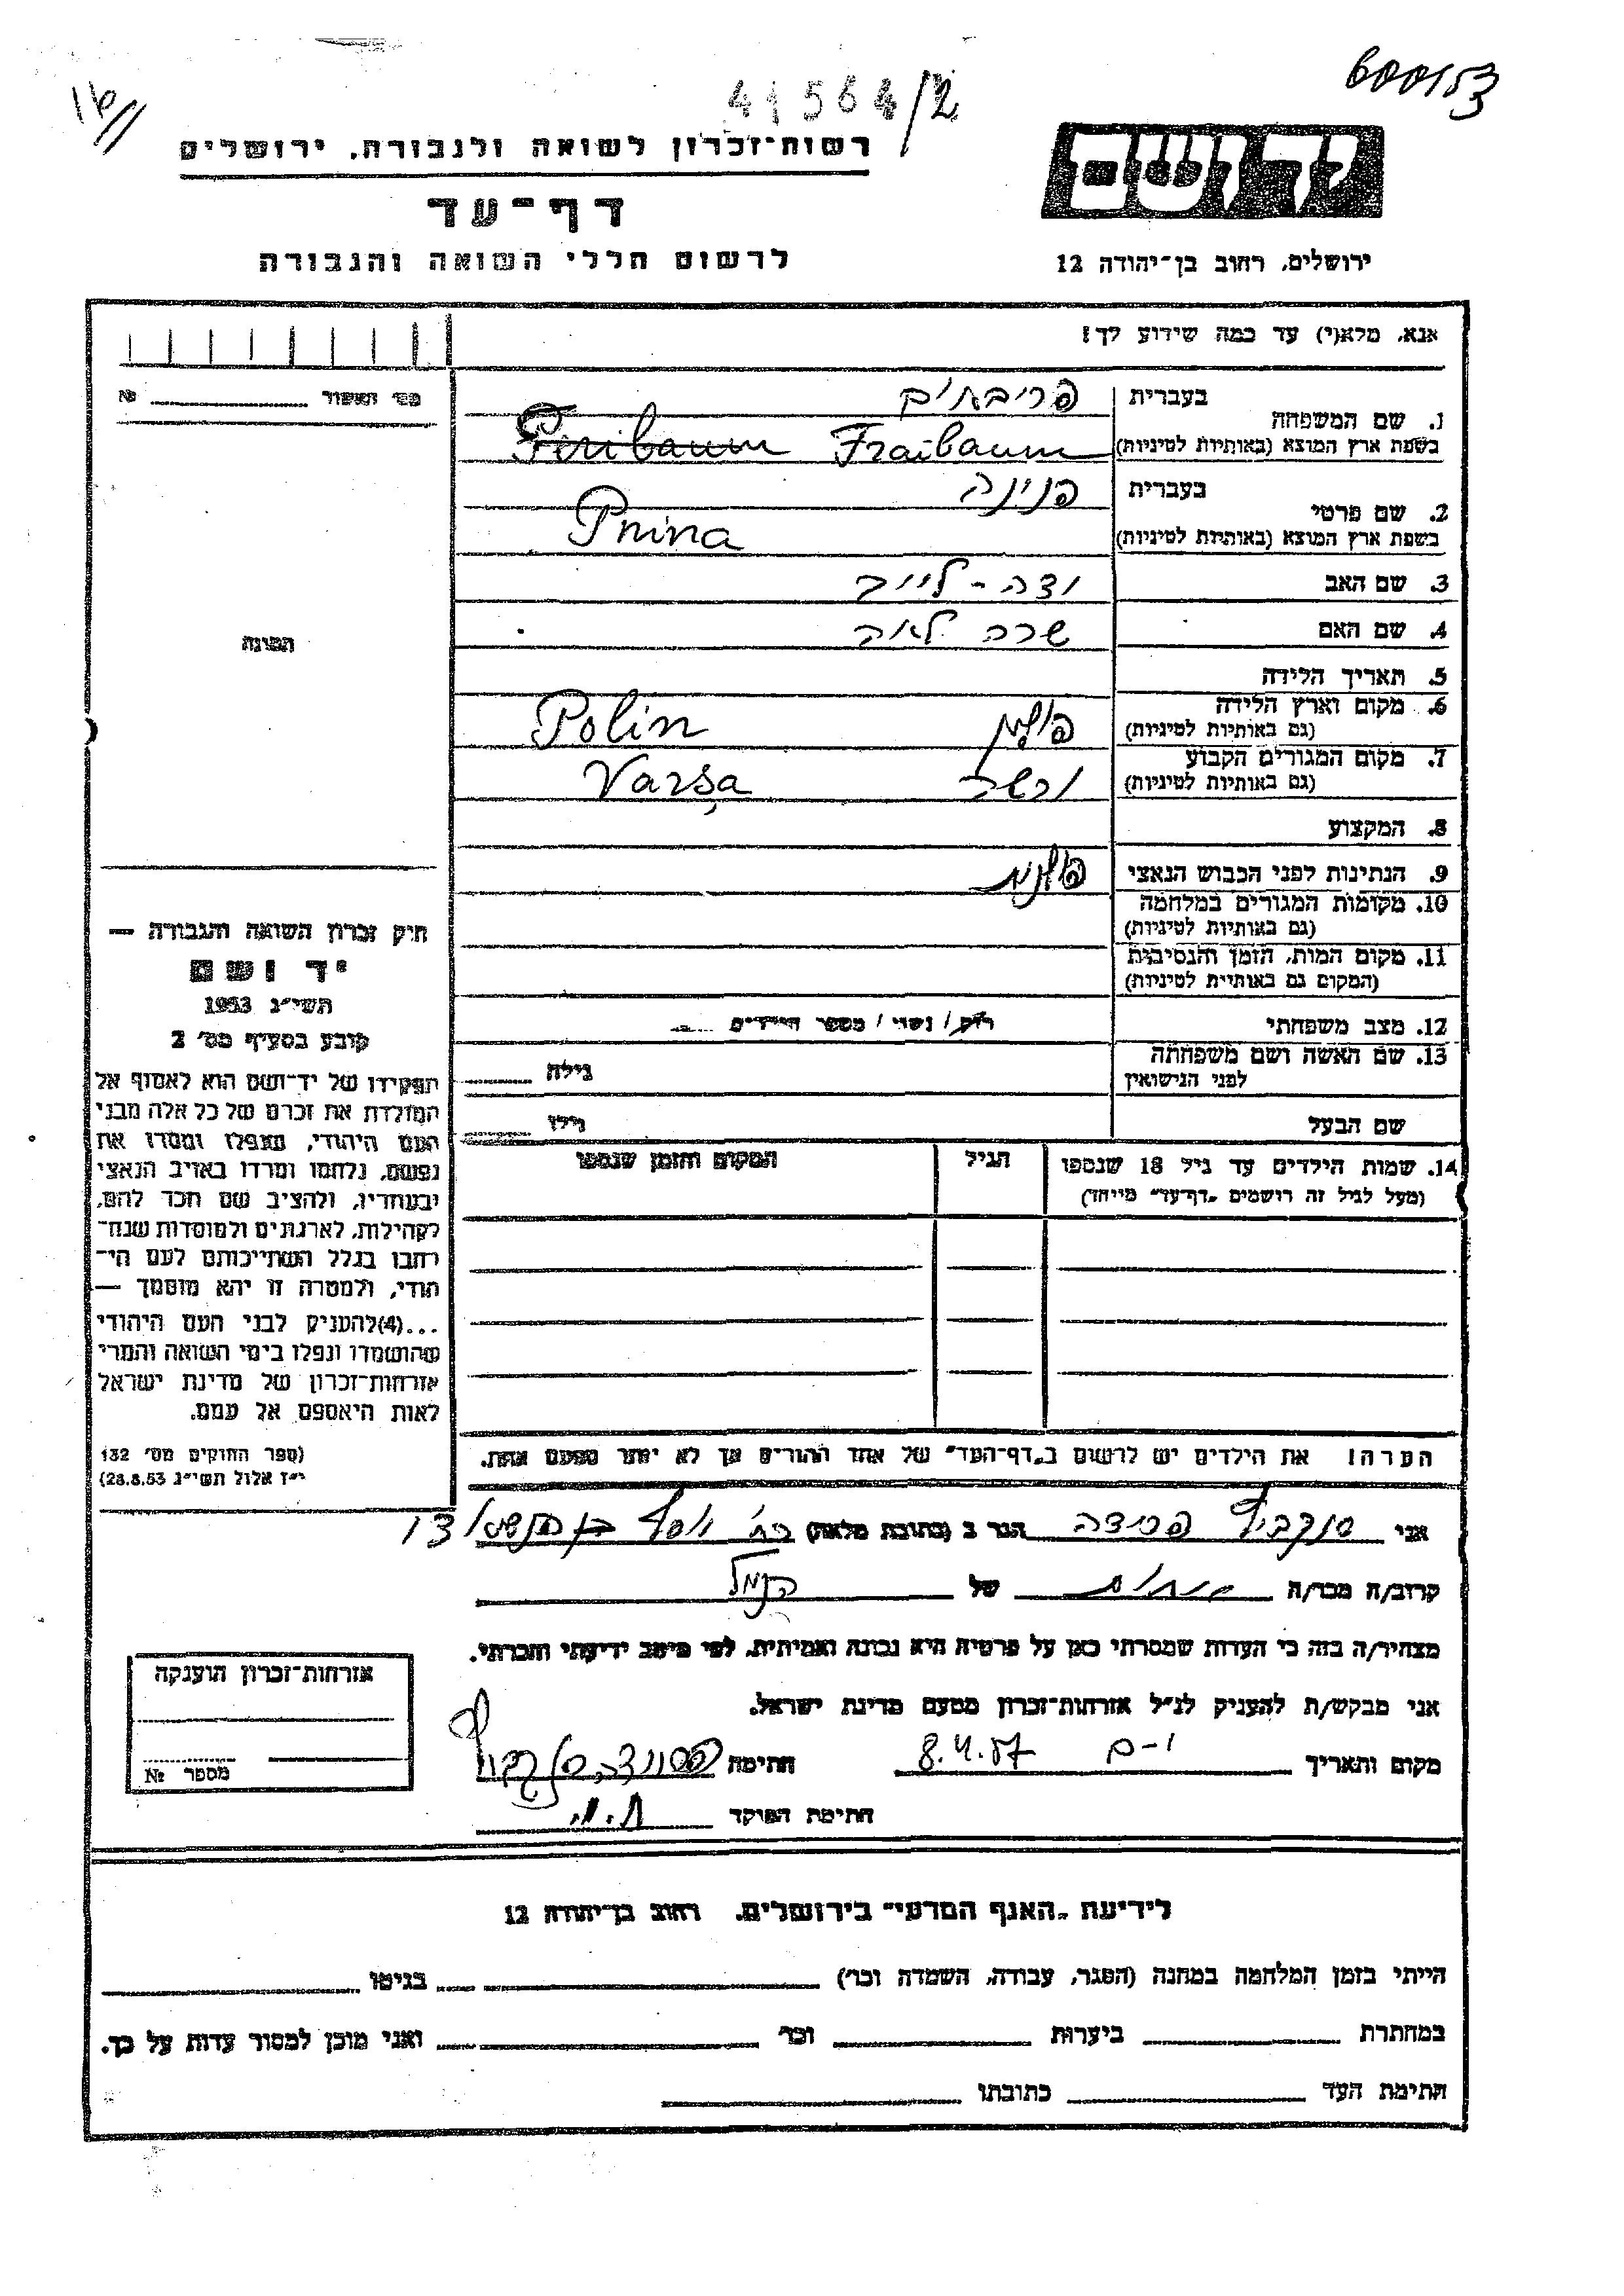 600153
41564/2
יד ושם
רשות-זכרון לשואה ולגבורה, ירושלים
דף-עד
לרשום חללי השואה והגבורה
ירושלים, רחוב בן-יהודה 12
אנא, מלא(י) עד כמה שידוע לך!
מס' תאשור №
1. שם המשפחה
בעברית פריבאום
בשפת ארץ המוצא (באותיות לטיניות) Fraibaum
2. שם פרטי
בעברית פנינה
בשפת ארץ המוצא (באותיות לטיניות) Pnina
3. שם האב לייב
4. שם האם שרה לאה
5. תאריך הלידה
6. מקום וארץ הלידה
(גם באותיות לטיניות) פולין Polin
7. מקום המגורים הקבוע
(גם באותיות לטיניות) ורשה Varşa
8. המקצוע
9. הנתינות לפני הכבוש הנאצי פולנית
10. מקומות המגורים במלחמה
(גם באותיות לטיניות)
11. מקום המות, הזמן והנסיבות
(המקום גם באותיות לטיניות)
12. מצב משפחתי רוק/נשוי/מספר הילדים
13. שם האשה ושם משפחתה
לפני הנישואין גילה
שם הבעל גילו
14. שמות הילדים עד גיל 18 שנספו הגיל המקום והזמן שנספו
(מעל לגיל זה רושמים "דף-עד" מיוחד)
התמונה
חוק זכרון השואה והגבורה —
יד ושם
תשי"ג 1953
קובע בסעיף מס' 2
תפקידו של יד-ושם הוא לאסוף אל
המולדת את זכרם של כל אלה מבני
העם היהודי, שנפלו ומסרו את
נפשם, נלחמו ומרדו באויב הנאצי
ובעוזריו, ולהציב שם וזכר להם,
לקהילות, לארגונים ולמוסדות שנח־
רבו בגלל השתייכותם לעם הי־
הודי, ולמטרה זו יהא מוסמך —
...(4)להעניק לבני העם היהודי
שהושמדו ונפלו בימי השואה והמרי
אזרחות-זכרון של מדינת ישראל
לאות היאספם אל עמם.
(ספר החוקים מס' 132
י"ז אלול תשי"ג 28.8.53)
הערה! את הילדים יש לרשום ב"דף-העד" של אחד ההורים אך לא יותר מפעם אחת.
אני הגר ב (כתובת מלאה) רח' יוסף בן
קרוב/ה מכר/ה של הנ"ל
מצהיר/ה בזה כי העדות שמסרתי כאן על פרטיה היא נכונה ואמיתית, לפי מיטב ידיעתי והכרתי.
אני מבקש/ת להעניק לנ"ל אזרחות-זכרון מטעם מדינת ישראל.
מקום ותאריך י-ם 8.4.87 חתימה
חתימת הפוקד
אזרחות-זכרון הוענקה
מספר №
לידיעת "האגף המדעי" בירושלים, רחוב בן-יהודה 12
הייתי בזמן המלחמה במחנה (הסגר, עבודה, השמדה וכו') בגיטו
במחתרת ביערות וכו' ואני מוכן למסור עדות על כך.
חתימת העד כתובתו